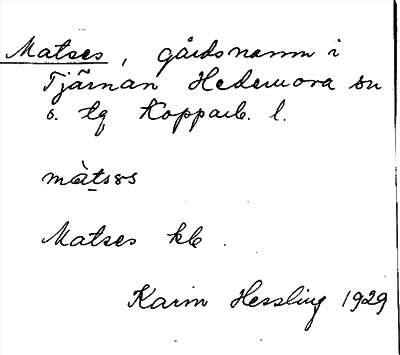 Matses, gårdsnamn i
Tjärnan Hedemora sn
o. tg Kopparb. l.
màtsɛs
Matses kb.
Karin Hessling 1929